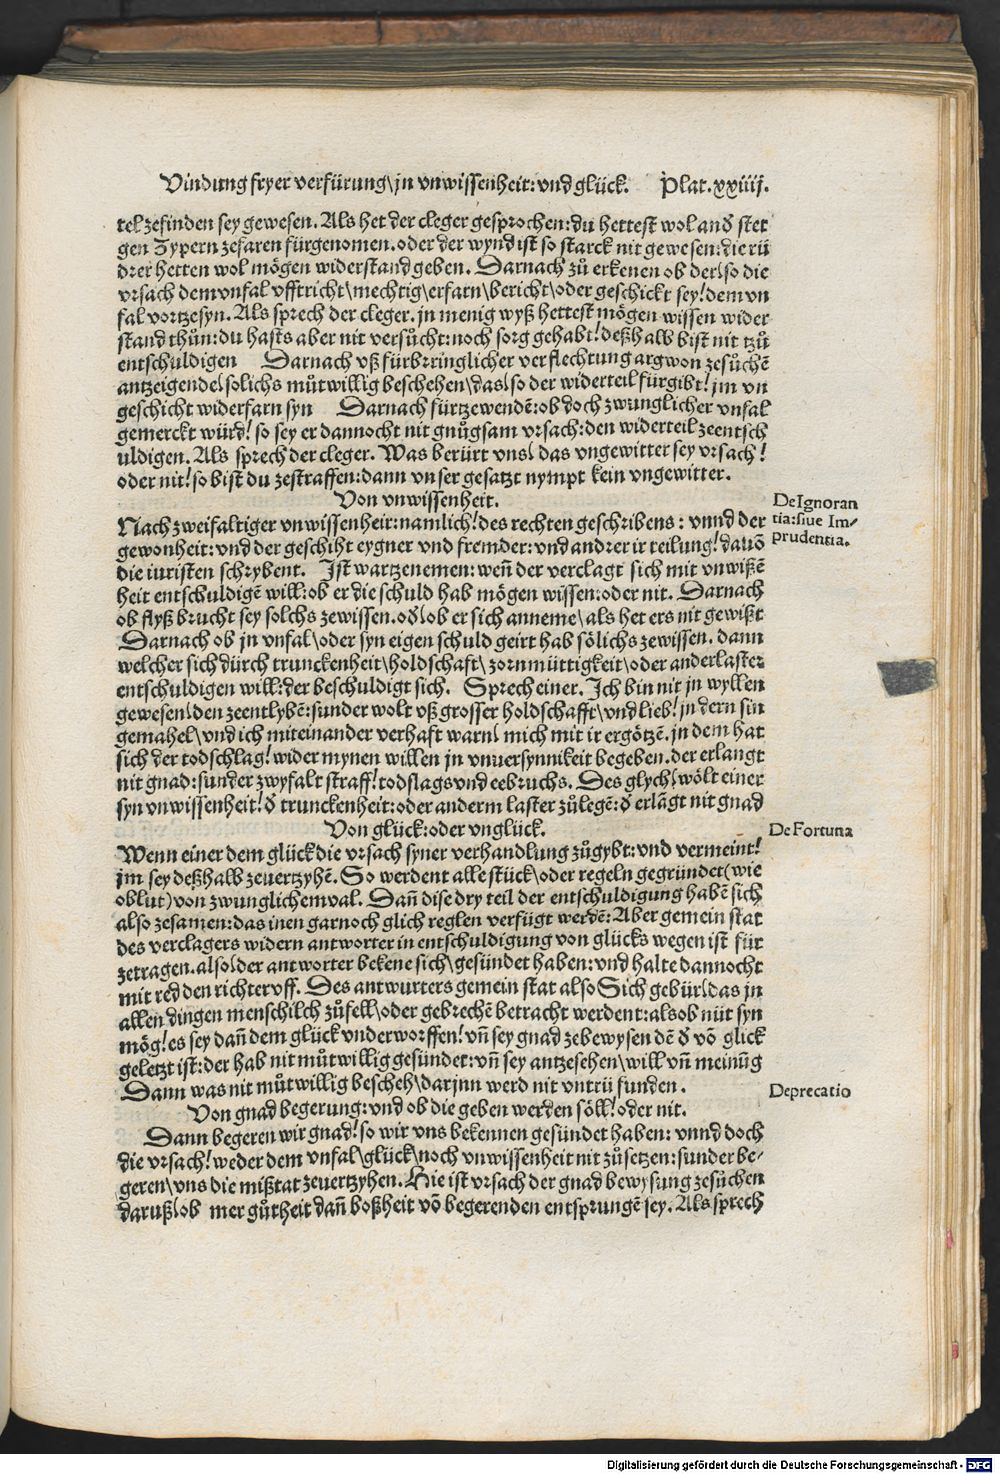 Vindung fryer verfürung\ jn vnwissenheit: vnd glück. Plat. xxiiij.
tel zefinden sey gewesen. Als het der cleger gesprochen: du hettest wol and̄ stet
gen Zypern zefaren fürgenomen. oder der wynd ist so starck nit gewesen: die rü
drer hetten wol mögen widerstand geben. Darnach zů erkenen ob der\ so die
vrsach dem vnfal vfftricht\ mechtig\ erfarn\ bericht\ oder geschickt sey! dem vn
fal vortzesyn. Als sprech der cleger. jn menig wyß hettest mögen wissen wider
stand thůn: du hasts aber nit versůcht: noch sorg gehabt! deßhalb bist nit tzů
entschuldigen Darnach vß fürbrringlicher verflechtung argwon zesůchē
antzeigende\ solichs můtwillig beschehen\ das\ so der widerteil fürgibt! jm vn
geschicht widerfarn syn Darnach fürtzewendē: ob doch zwunglicher vnfal
gemerckt würd! so sey er dannocht nit gnůgsam vrsach: den widerteil zeentsch
uldigen. Als sprech der cleger. Was berürt vns\ das vngewitter sey vrsach!
oder nit! so bist du zestraffen: dann vnser gesatzt nympt kein vngewitter.
Von vnwissenheit.
De Ignoran
tia: siue Im-
prudentia.
Nach zweifaltiger vnwissenheit: namlich! des rechten geschribens: vnnd der
gewonheit: vnd der geschiht eygner vnd fremder: vnd andrer ir teilung! dauō
die iuristen schrybent. Ist wartzenemen: weñ der verclagt sich mit vnwißē
heit entschuldigē will: ob er die schuld hab mögen wüssen: oder nit. Darnach
ob flyß brucht sey solchs zewissen. od̄\ ob er sich anneme\ als het ers nit gewißt
Darnach ob jn vnfal\ oder syn eigen schuld geirt hab sölichs zewissen. dann
welcher sich dürch trunckenheit\ holdschaft\ zornmüttigkeit\ oder ander laster
entschuldigen will: der beschuldigt sich. Sprech einer. Ich bin nit jn wyllen
gewesen\ den zeentlybē: sunder wolt vß grosser holdschafft\ vnd lieb! jn dern sin
gemahel\ vnd ich miteinander verhaft warn\ mich mit ir ergötzē. jn dem hat
sich der todschlag! wider mynen willen jn vnuersynnikeit begeben. der erlangt
nit gnad: sunder zwyfalt straff! todslags vnd eebruchs. Des glych\ wölt einer
syn vnwissenheit! d̄ trunckenheit: oder anderm laster zůlegē: d̄ erlāgt nit gnad
Von glück: oder vnglück.
De Fortuna
Wenn einer dem glück die vrsach syner verhandlung zůgybt: vnd vermeint!
jm sey deßhalb zeuertzyhē. So werdent alle stück\ oder regeln gegründet (wie
oblut) von zwunglichem val. Dañ dise dry teil der entschuldigung habē sich
also zesamen: das inen gar noch glich reglen verfügt werdē: Aber gemein stat
des verclagers widern antworter in entschuldigung von glücks wegen ist für
zetragen. also\ der antworter bekene sich\ gesündet haben: vnd halte dannocht
mit red den richter vff. Des antwurters gemein stat also Sich gebür\ das jn
allen dingen menschilch zůfell\ oder gebrechē betracht werdent: als ob nüt syn
mög! es sey dañ dem glück vnderworffen! vñ sey gnad zebewysen dē d̄ vō glick
geletzt ist: der hab nit můtwillig gesündet: vñ sey antzesehen\ will vñ meinūg
Dann was nit můtwillig bescheh\ darjnn werd nit vntrü funden.
Deprecatio
Von gnad begerung: vnd ob die geben werden söll! oder nit.
Dann begeren wir gnad! so wir vns bekennen gesündet haben: vnnd doch
die vrsach! weder dem vnfal\ glück\ noch vnwissenheit nit zůsetzen: sunder be-
geren\ vns die mißtat zeuertzyhen. Hie ist vrsach der gnad bewysung zesůchen
daruß\ ob mer gůtheit dañ boßheit vō begerenden entsprungē sey. Als sprech
Digitalisierung gefördert durch die Deutsche Forschungsgemeinschaft - DFG